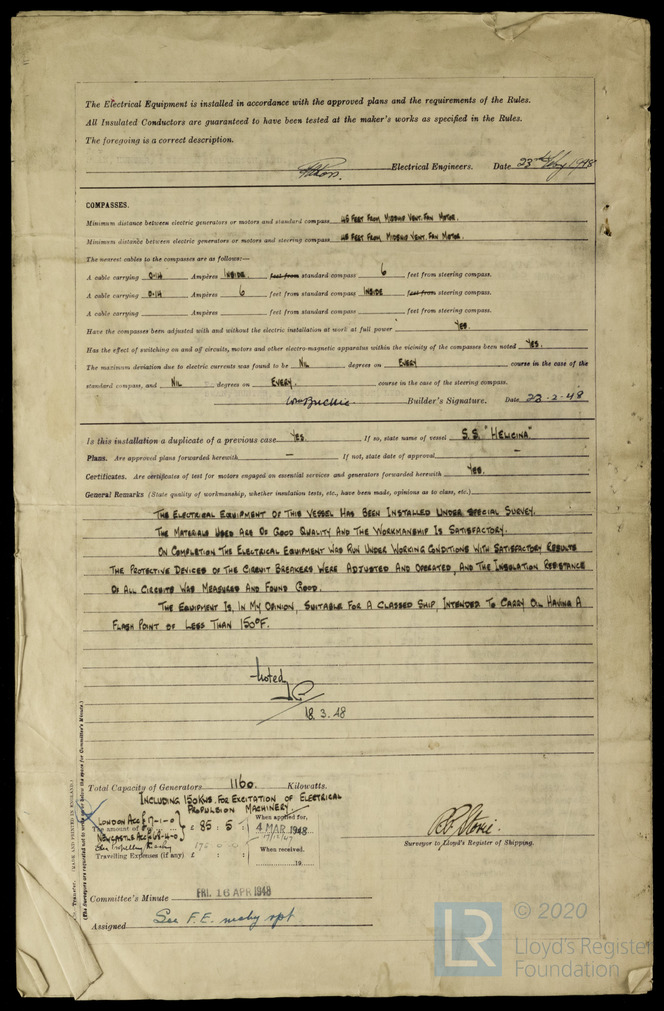 The Electrical Equipment is installed in accordance with the approved plans and the requirements of the Rules.
All Insulated Conductors are guaranteed to have been tested at the maker's works as specified in the Rules.
The foregoing is a correct description.
Electrical Engineers. Date 23rd 1948
COMPASSES.
Minimum distance between electric generators or motors and standard compass 45 FEET FROM MIDSHIP VENT. FAN MOTOR.
Minimum distance between electric generators or motors and steering compass FEET FROM MIDSHIP VENT. FAN MOTOR.
The nearest cables to the compasses are as follows:—
A cable carrying 0.14 Ampères INSIDE feet from standard compass 6 feet from steering compass.
A cable carrying 0.14 Ampères 6 feet from standard compass INSIDE feet from steering compass.
A cable carrying Ampères feet from standard compass feet from steering compass.
Have the compasses been adjusted with and without the electric installation at work at full power YES.
Has the effect of switching on and off circuits, motors and other electro-magnetic apparatus within the vicinity of the compasses been noted YES.
The maximum deviation due to electric currents was found to be NIL degrees on EVERY course in the case of the
standard compass, and NIL degrees on EVERY. course in the case of the steering compass.
Builder's Signature. Date 23-2-48
Is this installation a duplicate of a previous case YES. If so, state name of vessel S.S. "HELICINA"
Plans. Are approved plans forwarded herewith — If not, state date of approval —
Certificates. Are certificates of test for motors engaged on essential services and generators forwarded herewith YES.
General Remarks (State quality of workmanship, whether insulation tests, etc., have been made, opinions as to class, etc.)
THE ELECTRICAL EQUIPMENT OF THIS VESSEL HAS BEEN INSTALLED UNDER SPECIAL SURVEY.
THE MATERIALS USED ARE OF GOOD QUALITY AND THE WORKMANSHIP IS SATISFACTORY.
ON COMPLETION THE ELECTRICAL EQUIPMENT WAS RUN UNDER WORKING CONDITIONS WITH SATISFACTORY RESULTS
THE PROTECTIVE DEVICES OF THE CIRCUIT BREAKERS WERE ADJUSTED AND OPERATED, AND THE INSULATION RESISTANCE
OF ALL CIRCUITS WAS MEASURED AND FOUND GOOD.
THE EQUIPMENT IS, IN MY OPINION, SUITABLE FOR A CLASSED SHIP, INTENDED TO CARRY OIL HAVING A
FLASH POINT OF LESS THAN 150°F.
Noted
18.3.48
Total Capacity of Generators 1160. Kilowatts.
INCLUDING 150KWS. FOR EXCITATION OF ELECTRICAL
PROPULSION MACHINERY.
LONDON ACC £17-1-0
The amount of
£ 85 : 5 : When applied for,
4 MAR 1948
NEWCASTLE ACC £68-4-0
Travelling Expenses (if any) £ : : When received,
19
Surveyor to Lloyd's Register of Shipping.
Committee's Minute FRI. 16 APR 1948
Assigned See F.E. mchy rpt.
(MADE AND PRINTED IN ENGLAND.)
(The Surveyors are requested not to write on or below the space for Committee's Minute.)
LR
© 2020
Lloyd's Register
Foundation